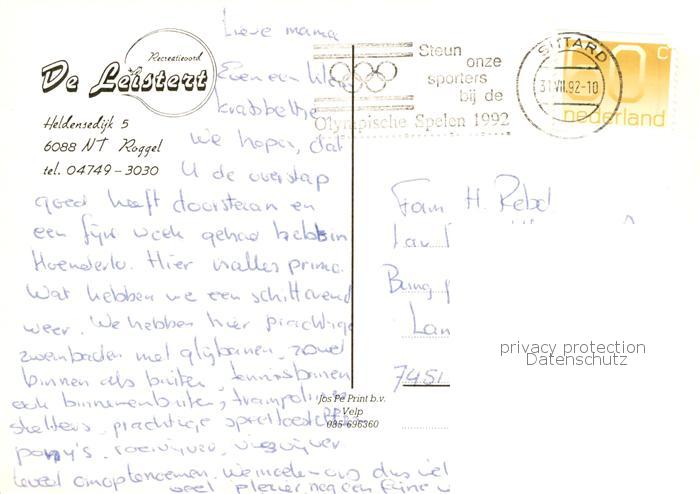 Recreatieoord
De Leistert
Heldensedijk 5
6088 NT Roggel
tel. 04749-3030
Lieve mama
Even een
krabbeltje
We hopen, dat
U de overstap
goed heeft doorstaan en
een fijne week gehad hebt in
Hoenderlo. Hier is alles prima.
Wat hebben we een schitterend
weer. We hebben hier prachtige
zwembaden met glijbanen, zowel
binnen als buiten, tennisbanen
ook binnen en buiten, trampolines
skelters, prachtige speeltoestellen
pony's, roeivijver, visvijver
teveel om op te noemen. We maken ons dus
veel plezier nog een fijne
Steun
onze
sporters
bij de
Olympische Spelen 1992
SITTARD
31.VII.92-10
60 c
nederland
Fam H. Rebel
Lan
7451
Jos Pé Print b.v.
Velp
085-696360
privacy protection
Datenschutz